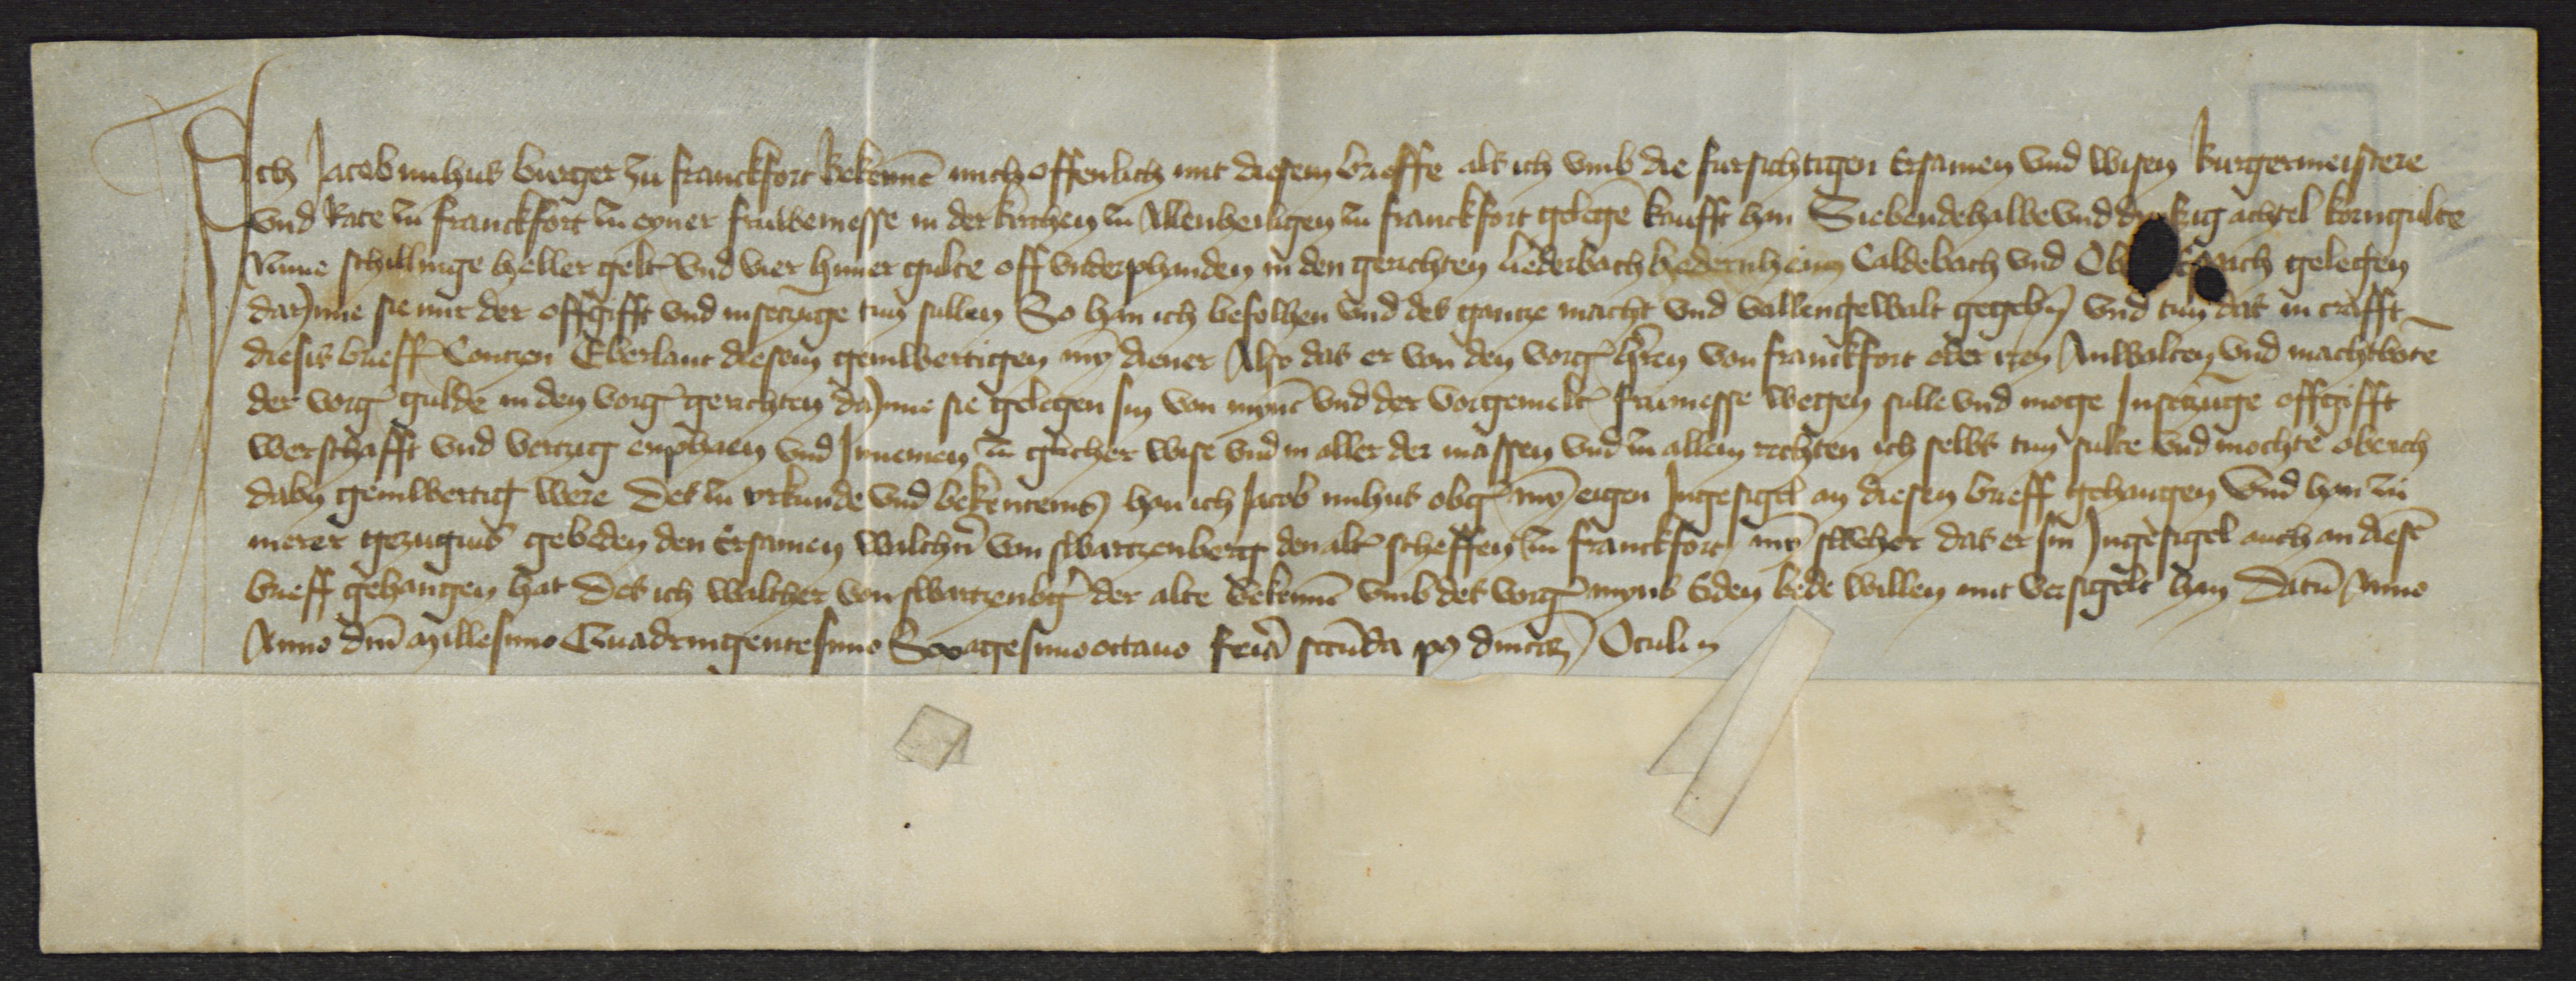 Ich Jacob nuhus burger zu franckfort Bekenne mich offenlich mit diesem brieffe als ich vmb die fursichtigen Ersamen vnd wisen Burgermeistere
vnd Rate zu franckfort zu eyner fruwemesse in der kirchen zu Allenheiligen zu franckfort gelegē kaufft han Siebendehalbe vnd achtel korngulte
Nune schillinge heller gelt vnd vier huner gulte off vnderphanden in den gerichten liederbach hedernheim Caldebach vnd gelegen
darjnne sie mir der offgifft vnd insetzūge tun sullen So han ich befolhen vnd des gantze macht vnd vollen gewalt gegebn vnd tun das in crafft
diesis brieff Contzen Eberlant diesem geinwertigen myn diener Also das er von den vorg hern von franckfort oder iren Anwalten vnd machtbotē
der vorg gulde in den vorg gerichten dajnne sie gelegen sin von myne vnd der vorgemelt frumesse wegen sulle vnd moge Insetzūge offgifft
werschafft vnd vertzig enphaen vnd Innemen zu glicher wise vnd in aller der massen vnd zu allem rechten ich selbs tun sulte vnd mochte ob ich
daby geinwertig were Des zu vrkunde vnd bekentenis han ich Jacob nuhus obg myn eigen Ingesigel an diesen brieff gehangen vnd han zu
merer gezugnis gebeden den Ersamen walthern von swartzenberg den alt scheffen zu franckfort myn sweher das er sin Ingesigel auch an diesē
brieff gehangen hat Des ich walther von swartzenbg der alte Bekenne vmb des vorg myns Eden bede willen mit versigelt han Datū Anno
Anno dnī Millesimo Quadringentesimo Sexagesimooctauo feria secūda post dnicam Oculi